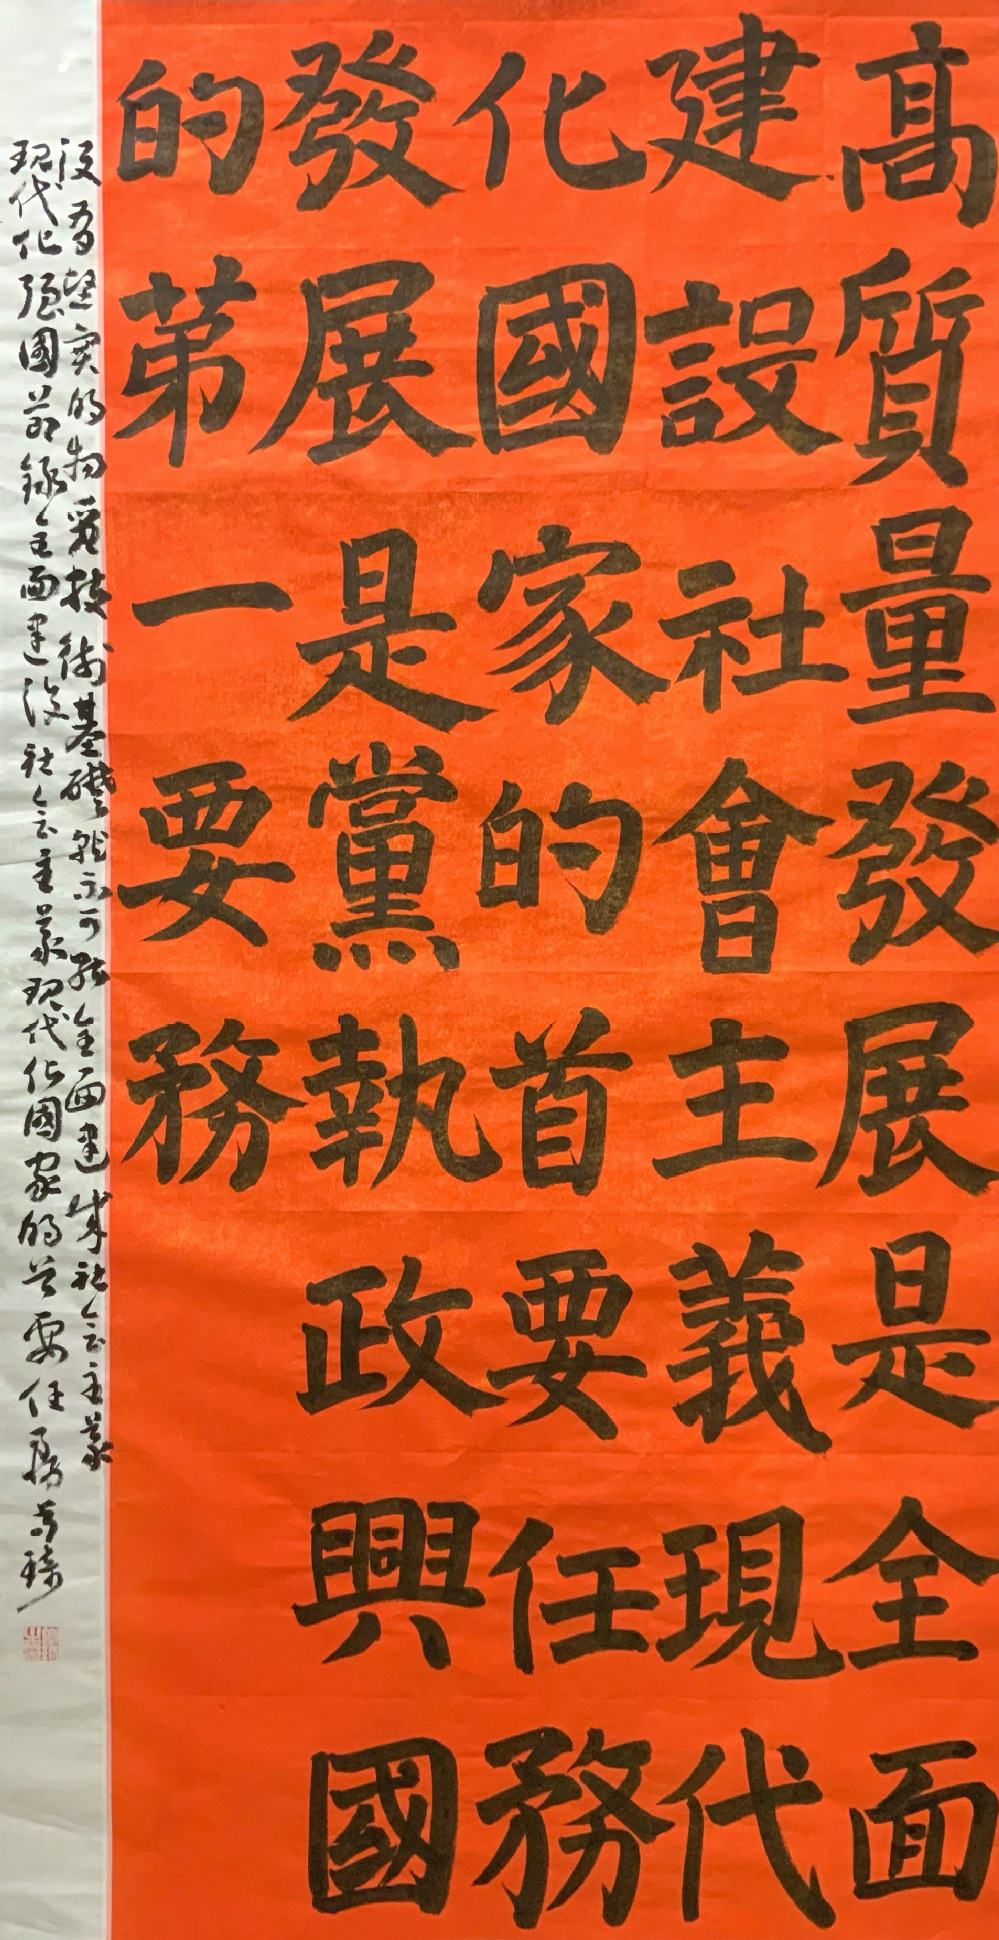 高質量發展是全面
建設社會主義現代
化國家的首要任務
發展是黨執政興國
的第一要務
没有堅实的物质技術基礎就不可能全面建成社会主義
現代化强国
全面建设社会主義現代化國家的首要任務